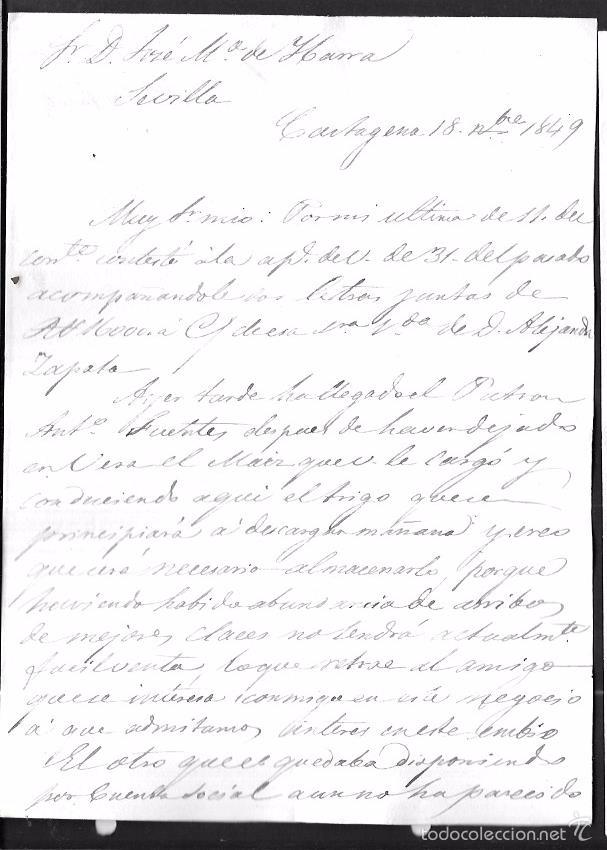 Sr. D. José Mª de Ybarra
Sevilla
Cartagena 18. nbre 1849
Muy Sr. mio: Por mi ultima de 11. del
corrte contesté á la ap. de V. de 31. del pasado
acompañandole dos letras juntas de
de D. Alejandro
Zapata
Ayer tarde ha llegado el Patron
Anto. Fuentes despues de haver dejado
en Vera el Maiz que V. le cargó y
conduciendo aqui el trigo que se
principiará á descargar mañana y creo
que será necesario almacenarlo, porque
haviendo habido abundancia de arribos
de mejores claces no tendrá actualmte
facil venta, lo que retrae al amigo
que se interesa conmigo en este negocio
á que admitamos interes en este embio
El otro que se quedaba disponiendo
por Cuenta social aun no ha parecido
todocoleccion.net
todocoleccion